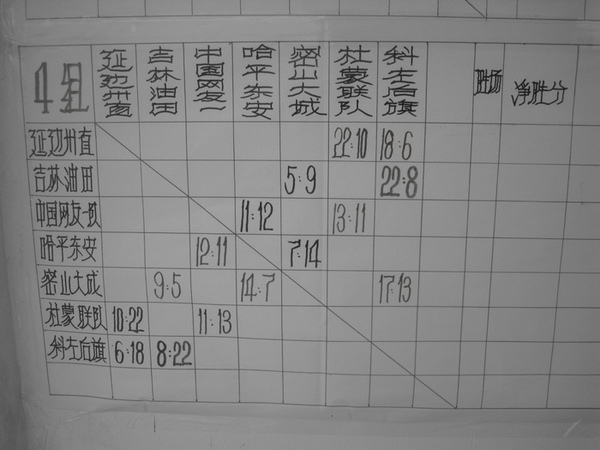 4组 延边州直 吉林油田 中国网友一 哈平东安 密山大城 杜蒙联队 科左后旗 胜场 净胜分
延边州直 22:10 18:6
吉林油田 5:9 22:8
中国网友一队 11:12 13:11
哈平东安 12:11 7:14
密山大成 9:5 14:7 17:13
杜蒙联队 10:22 11:13
科左后旗 6:18 8:22